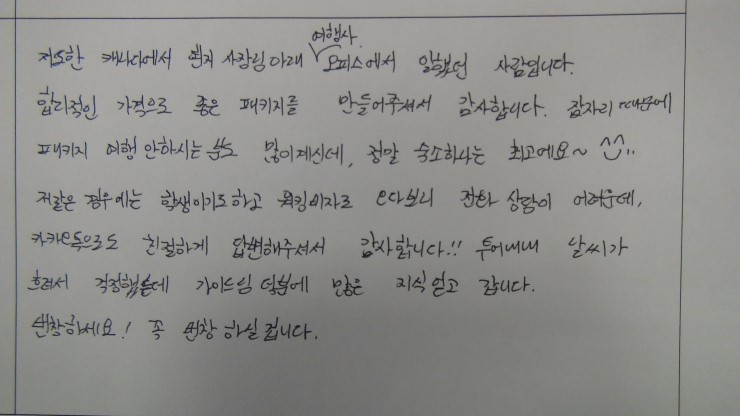 저또한 캐나다에서 현지 사장님 아래 여행사 오피스에서 일했던 사람입니다.
합리적인 가격으로 좋은 패키지를 만들어주셔서 감사합니다. 잠자리 때문에
패키지 여행 안하시는 분도 많이계신데, 정말 숙소하나는 최고에요~ ^^..
저같은 경우에는 학생이기도하고 워킹비자로 오다보니 전화 상담이 어려운데,
카카오톡으로도 친절하게 답변해주셔서 감사합니다!! 투어내내 날씨가
흐려서 걱정했는데 가이드님 덕분에 많은 지식 얻고 갑니다.
번창하세요! 꼭 번창 하실 겁니다.